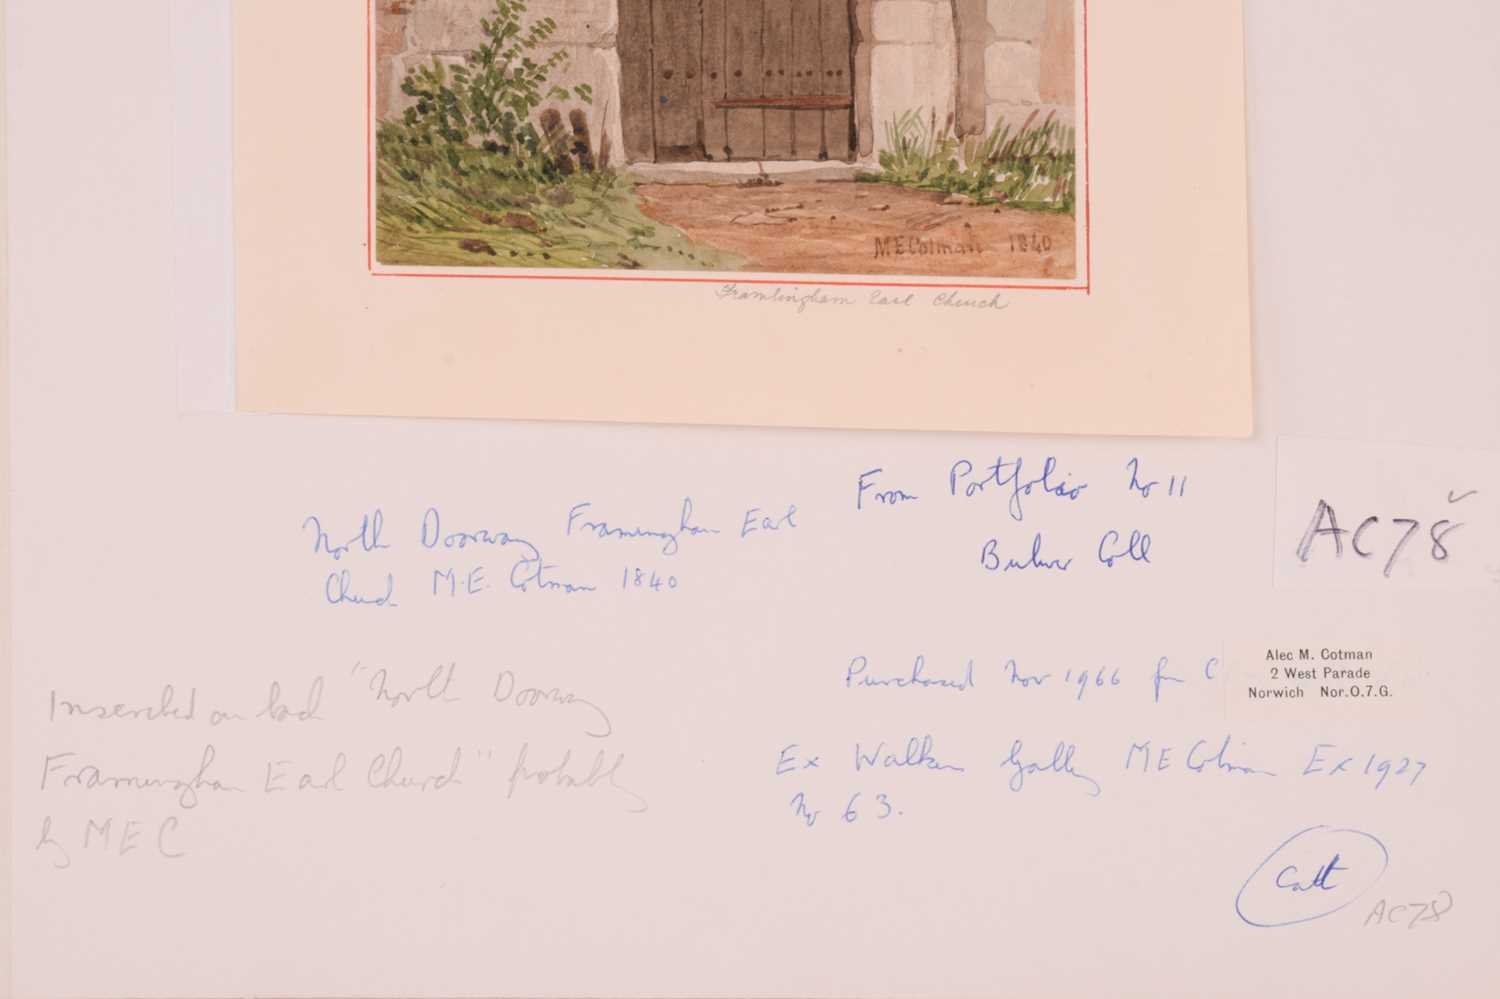 M E Cotman 1840
Framlingham Earl Church
From Portfolio No 11
Bulwer Coll
North Doorway Framingham Earl
Church M.E. Cotman 1840
AC78
Alec M. Cotman
2 West Parade
Norwich Nor.O.7.G.
Purchased Nov 1966 for C
Inscribed on back "North Doorway
Framingham Earl Church" probably
by M E C
Ex Walker Gallery M E Cotman Ex 1927
No 63.
AC78